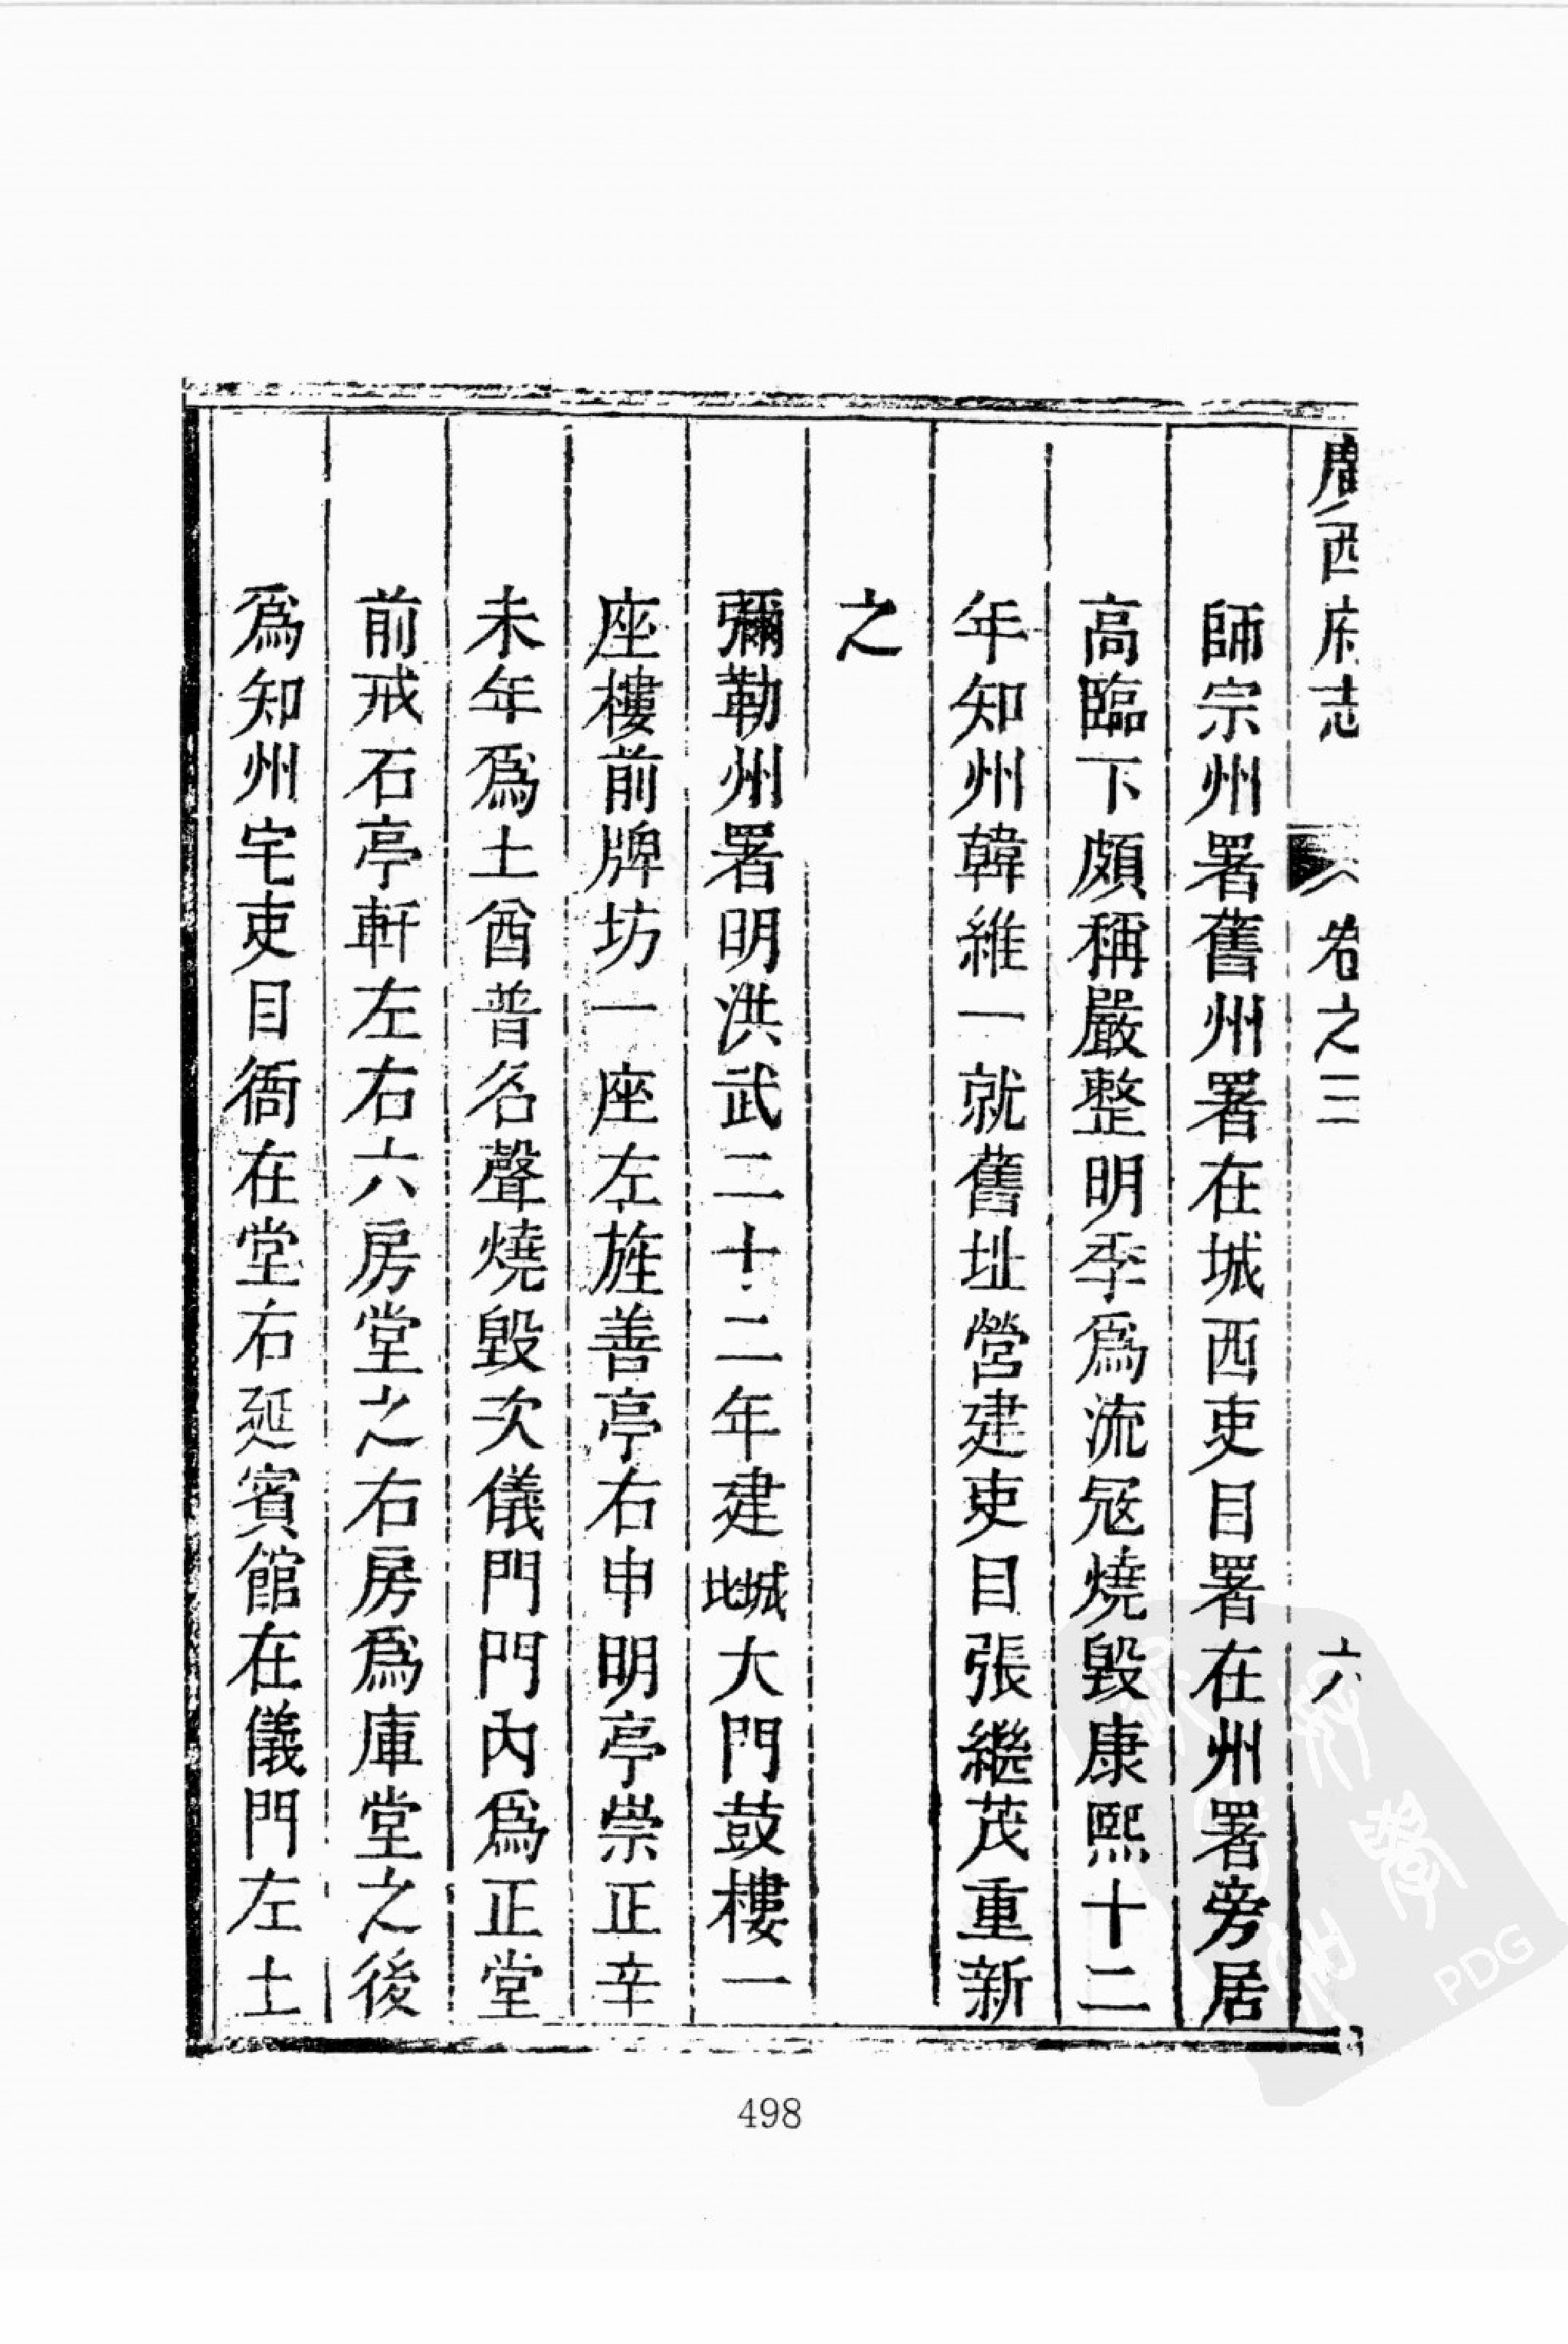 廣西府志 卷之三 六
師宗州署舊州署在城西吏目署在州署旁居
高臨下頗稱嚴整明季爲流冦燒毀康熙十二
年知州韓維一就舊址營建吏目張繼茂重新
之
彌勒州署明洪武二十二年建城北大門鼓樓一
座樓前牌坊一座左旌善亭右申明亭崇正辛
未年爲土酋普名聲燒毀次儀門門內爲正堂
前戒石亭軒左右六房堂之右房爲庫堂之後
爲知州宅吏目衙在堂右延賓館在儀門左土
498
PDG